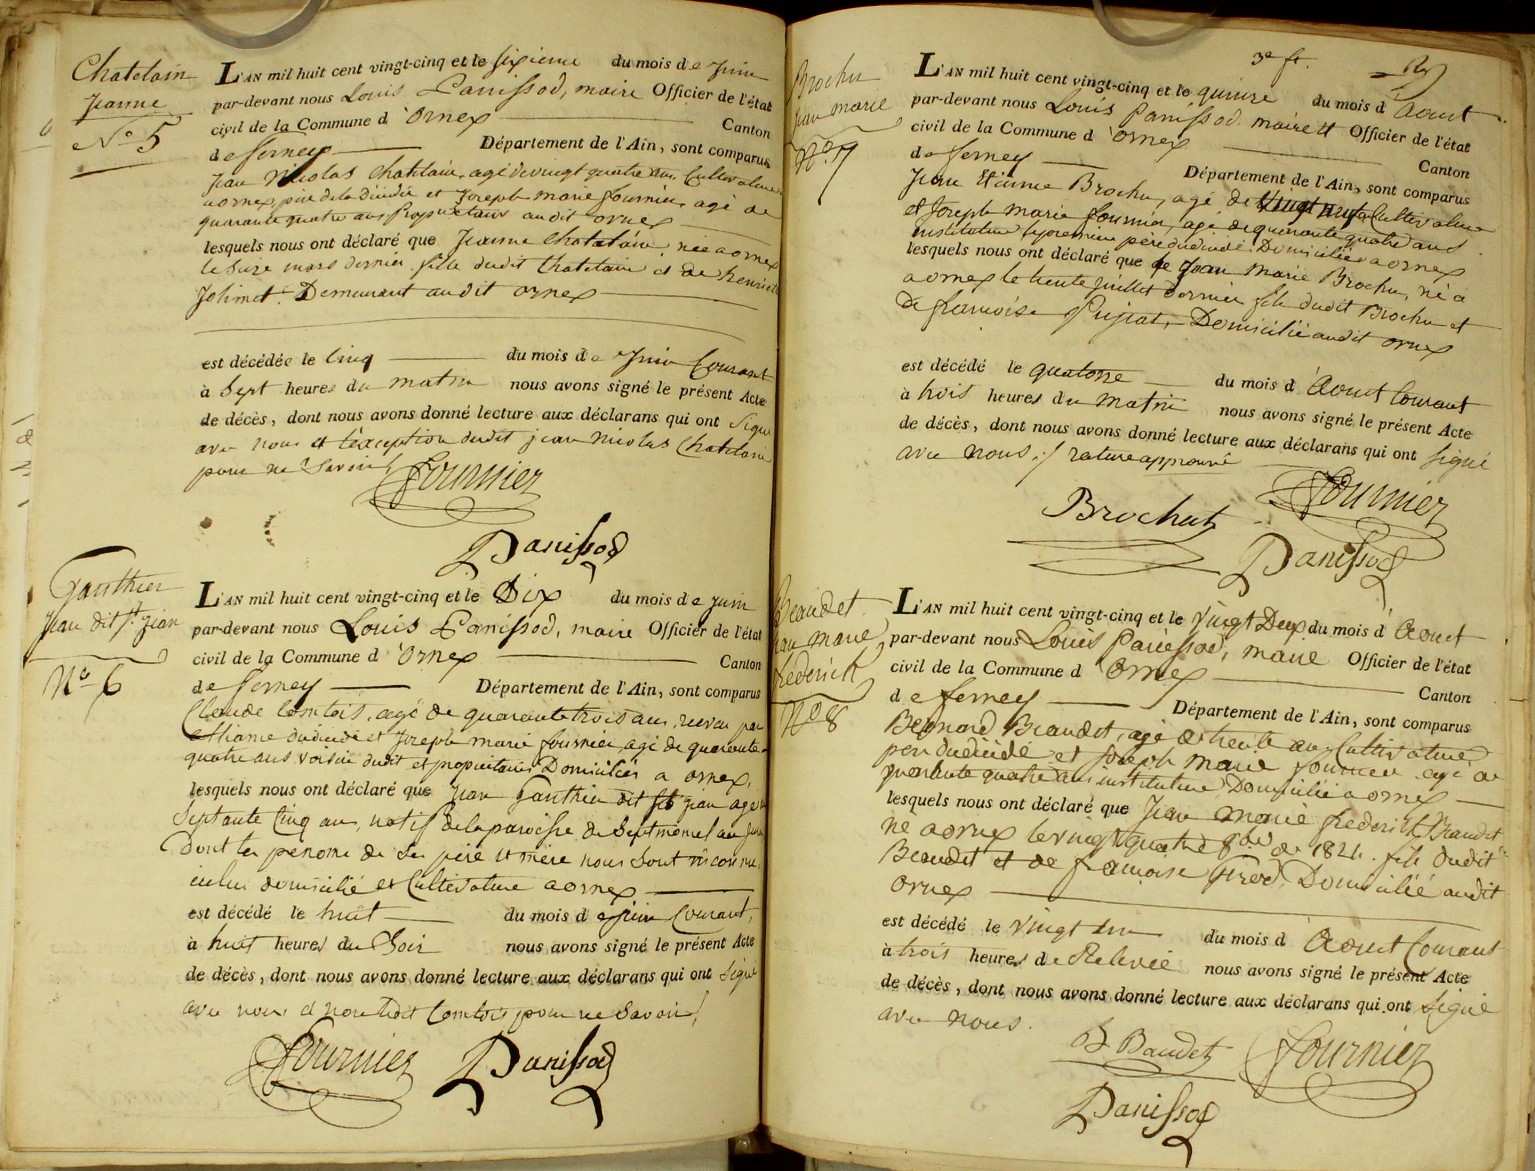 Chatelain
Jeanne
N.o 5
L'AN mil huit cent vingt-cinq et le sixieme du mois de Juin
par-devant nous Louis Panissod, maire Officier de l'état
civil de la Commune d'Ornex Canton
de ferney Département de l'Ain, sont comparus
Jean Nicolas Chatelain, agé de vingt quatre ans Cultivateur
a ornex, pere de la décédée et Joseph marie fournier, agé de
quarante quatre ans proprietaire audit ornex
lesquels nous ont déclaré que Jeanne Chatelain née a ornex
le seize mars dernier fille dudit Chatelain et de henriette
Jolimet. Demeurant audit ornex
est décédée le Cinq du mois de Juin Courant
à Sept heures du matin nous avons signé le présent Acte
de décès, dont nous avons donné lecture aux déclarans qui ont Signé
avec nous et l'exception dudit jean Nicolas Chatelain
pour ne Savoir
Fournier
Panissod
Gauthier
Jean dit St. Jean
N.o 6
L'AN mil huit cent vingt-cinq et le Dix du mois de Juin
par-devant nous Louis Panissod, maire Officier de l'état
civil de la Commune d'Ornex Canton
de ferney Département de l'Ain, sont comparus
Claude Comtois, agé de quarante trois ans, neveu par
alliance dudécédé et Joseph marie fournier, agé de quarante
quatre ans voisin dudit et proprietaires Domiciliés a ornex,
lesquels nous ont déclaré que Jean Gauthier dit St jean agé de
Septante Cinq ans, natif de la paroisse de Septmoncel au Jura
Dont les prenoms de Ses père et mère nous Sont inconnus
icelui domicilié et Cultivateur a ornex
est décédé le huit du mois de Juin Courant,
à huit heures du Soir nous avons signé le présent Acte
de décès, dont nous avons donné lecture aux déclarans qui ont Signé
avec nous et non ledit Comtois pour ne Savoir
Fournier Panissod
3e ft.
Brochu
Jean marie
N.o 7
L'AN mil huit cent vingt-cinq et le quinze du mois d'Aout
par-devant nous Louis Panissod maire Officier de l'état
civil de la Commune d'Ornex Canton
de ferney Département de l'Ain, sont comparus
Jean Etienne Brochu, agé de Vingt huit Cultivateur
et Joseph marie fournier, agé de quarante quatre ans
instituteur le premier père dudécédé Domiciliés a ornex
lesquels nous ont déclaré que Jean Marie Brochu, né a
a ornex le trente juillet dernier fils dudit Brochu et
De françoise Domicilié audit ornex
est décédé le quatorze du mois d'Aout Courant
à trois heures du matin nous avons signé le présent Acte
de décès, dont nous avons donné lecture aux déclarans qui ont Signé
avec nous. rature approuvé
Fournier
Brochut
Panissod
Beaudet
Jean marie
frederick
N.o 8
L'AN mil huit cent vingt-cinq et le Vingt Deux du mois d'Aout
par-devant nous Louis Panissod, maire Officier de l'état
civil de la Commune d'Ornex Canton
de ferney Département de l'Ain, sont comparus
Bernard Beaudet, agé de trente ans Cultivateur
pere dudécédé et Joseph marie fournier agé de
quarante quatre ans instituteur Domiciliés a ornex
lesquels nous ont déclaré que Jean marie frederick Beaudet
né a ornex le vingt quatre 8bre de 1824. fils dudit
Beaudet et de françoise Domicilié audit
ornex
est décédé le vingt un du mois d'Aout Courant
à trois heures de Relevée nous avons signé le présent Acte
de décès, dont nous avons donné lecture aux déclarans qui ont Signé
avec nous.
B Baudet Fournier
Panissod